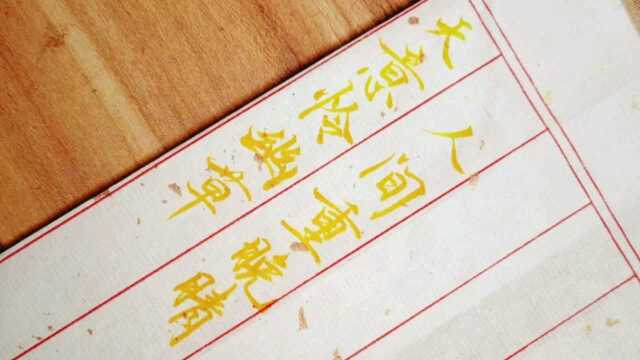 天意怜幽草
人间重晚晴